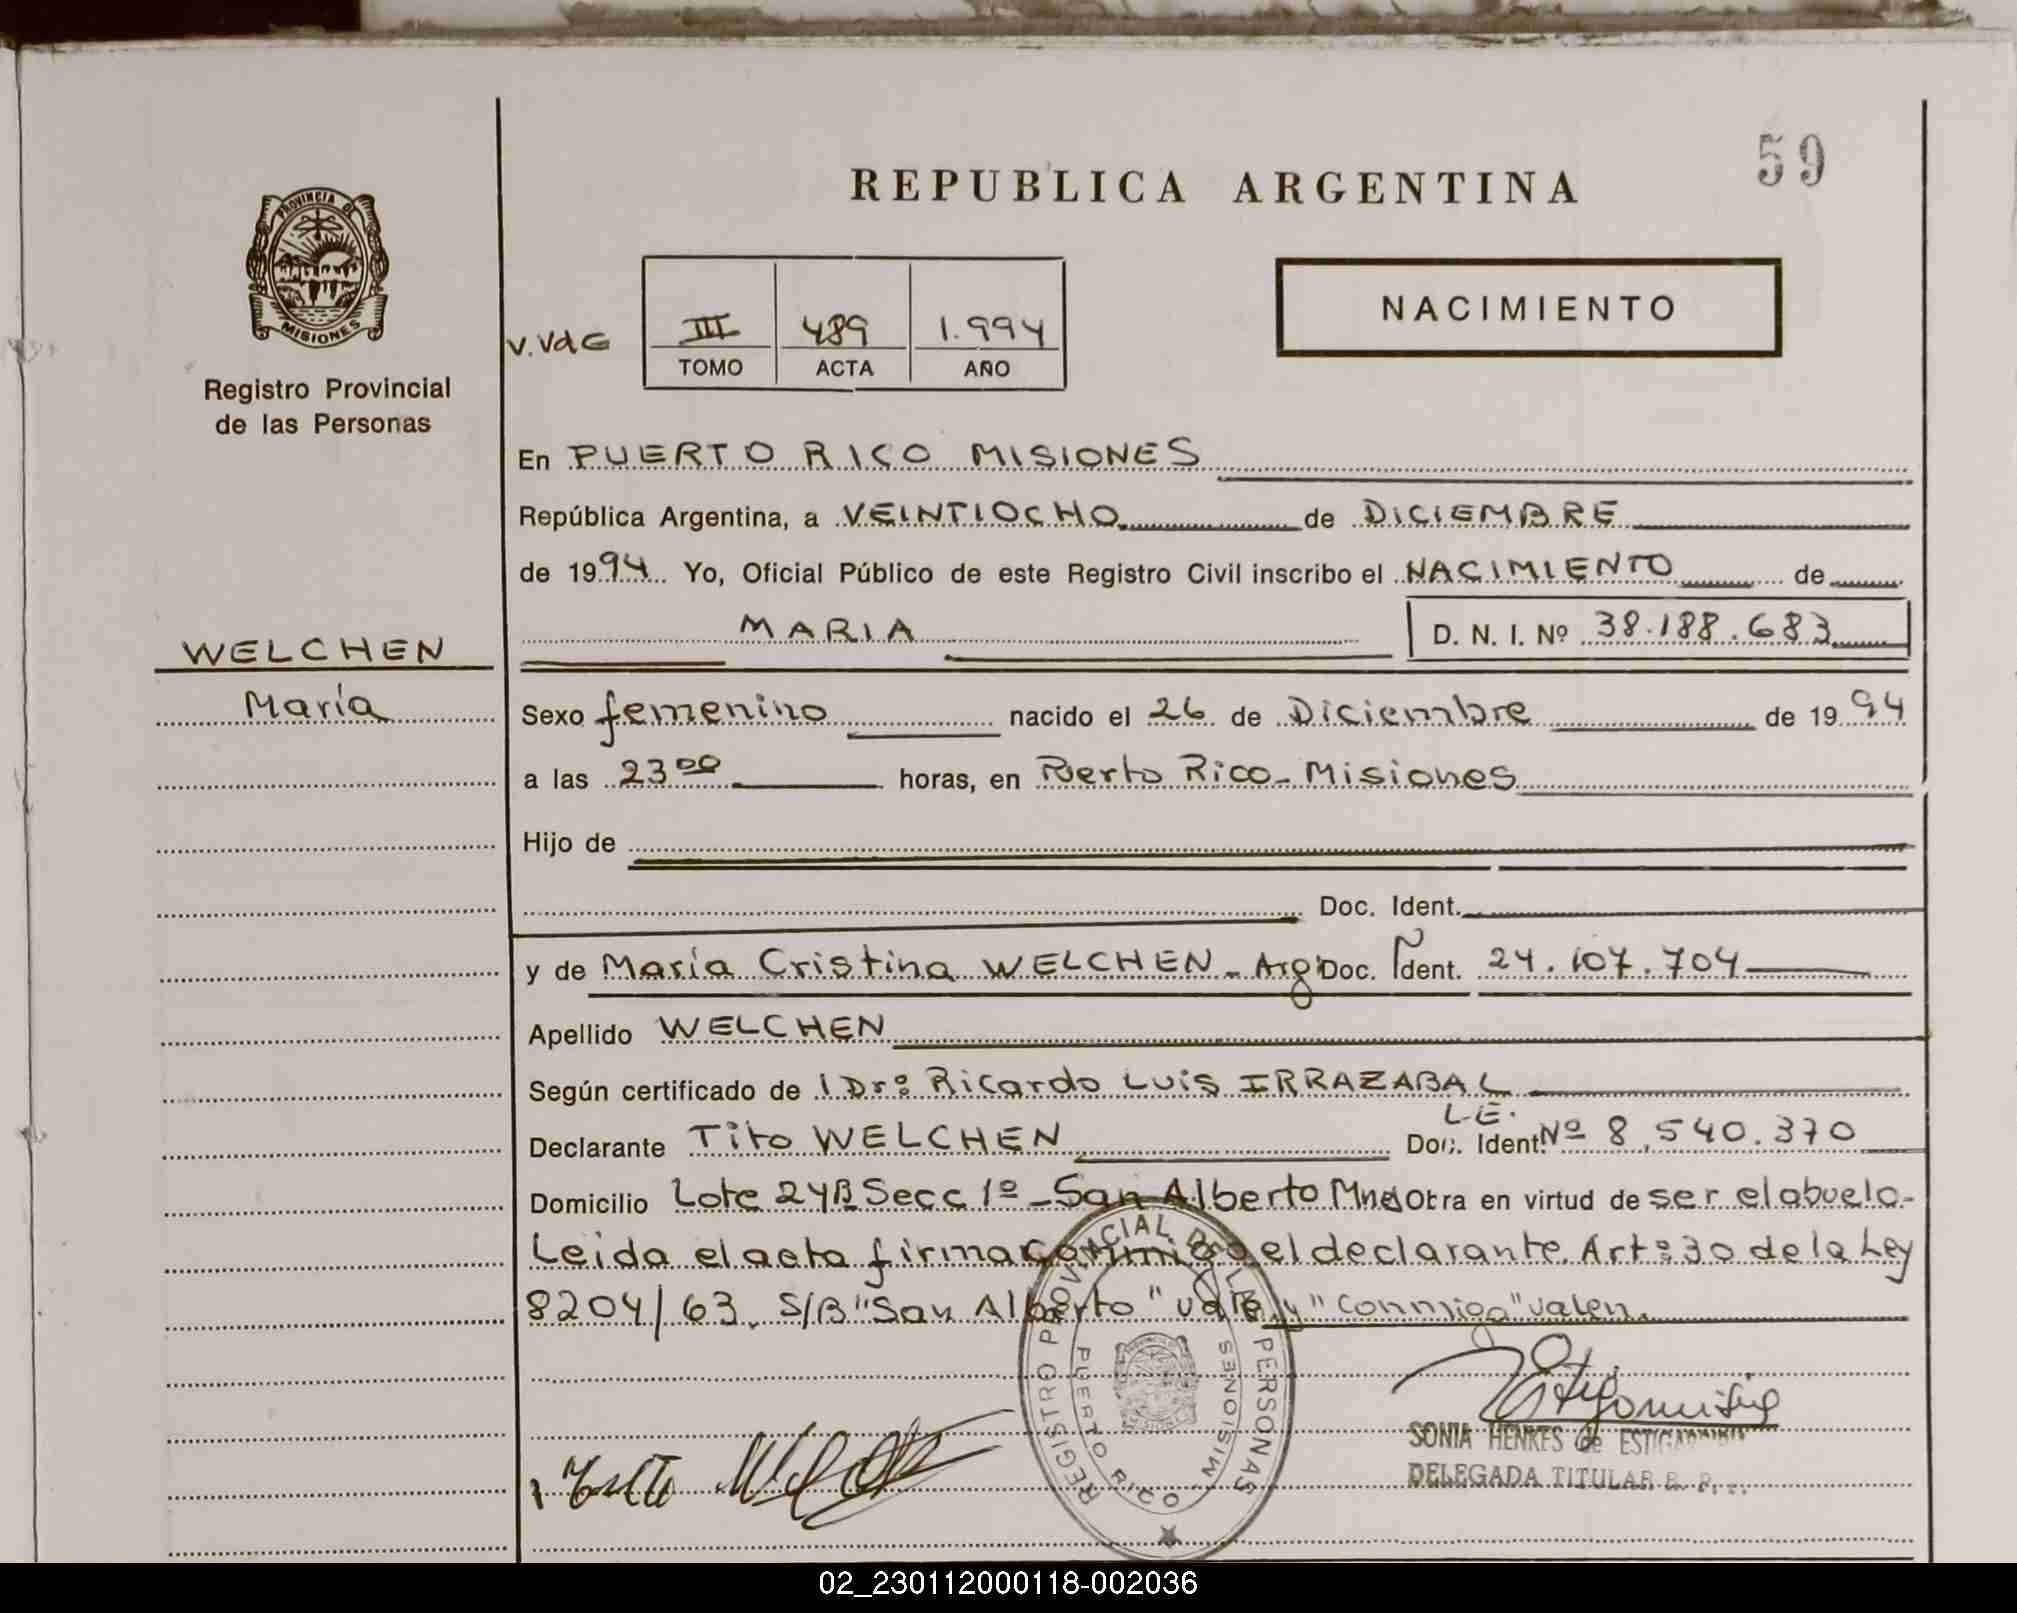 59
REPUBLICA ARGENTINA
PROVINCIA DE
MISIONES
Registro Provincial
de las Personas
V.VdG
III 489 1.994
TOMO ACTA AÑO
NACIMIENTO
En PUERTO RICO MISIONES
República Argentina, a VEINTIOCHO de DICIEMBRE
de 1994 Yo, Oficial Público de este Registro Civil inscribo el NACIMIENTO de
MARIA D. N. I. Nº 38.188.683
WELCHEN
María
Sexo femenino nacido el 26 de Diciembre de 1994
a las 23 00 horas, en Puerto Rico - Misiones
Hijo de
Doc. Ident.
y de María Cristina WELCHEN - Arg. Doc. Ident. 24.107.704
Apellido WELCHEN
Según certificado de l Drº Ricardo Luis IRRAZABAL
Declarante Tito WELCHEN Doc. Ident. L.E. Nº 8.540.370
Domicilio Lote 24B Secc 1º - San Alberto Mnes Obra en virtud de ser el abuelo.
Leida el acta firma conmigo el declarante. Artº 30 de la Ley
8204/63. S/B "San Alberto" vale y "conmigo" valen.
REGISTRO PROVINCIAL DE LAS PERSONAS
PUERTO RICO MISIONES
SONIA HENKES de ESTIGARRIBIA
DELEGADA TITULAR R. P.
02_230112000118-002036